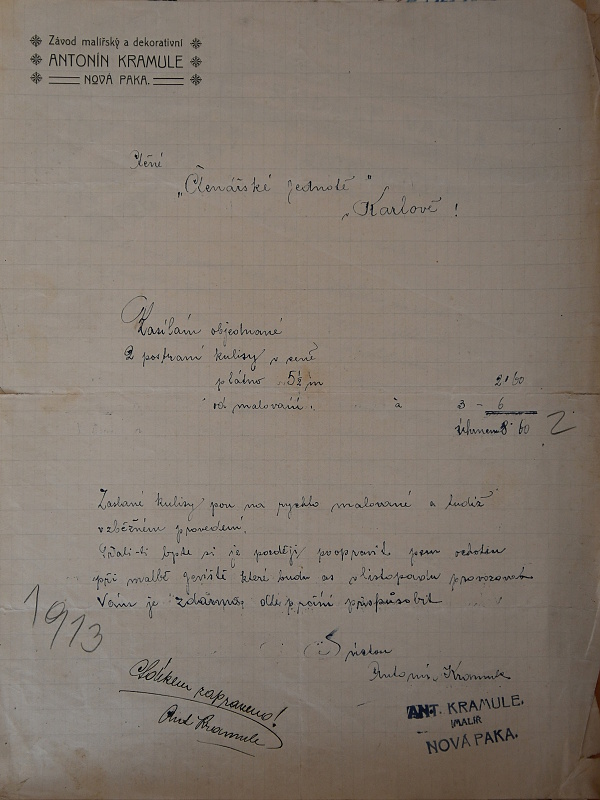 Závod malířský a dekorativní
ANTONÍN KRAMULE
NOVÁ PAKA.
Ctěné
„Čtenářské jednotě"
v Karlově!
Zasílám objednané
2 postraní kulisy v ceně
plátno 5½ m 2·60
od malovaní. à 3 – 6
úhrnem 8·60
2
Zaslané kulisy jsou na rychlo malované a tudíž
v zběžném provedení.
by ste si je později poopravit jsem ochoten
při malbě jeviště které budu as v listopadu provozovat
Vám je zdarma, dle přání přispůsobit
1913
S úctou
Antonín Kramule
S díkem zapraveno!
Ant Kramule
ANT. KRAMULE.
MALÍŘ
NOVÁ PAKA.